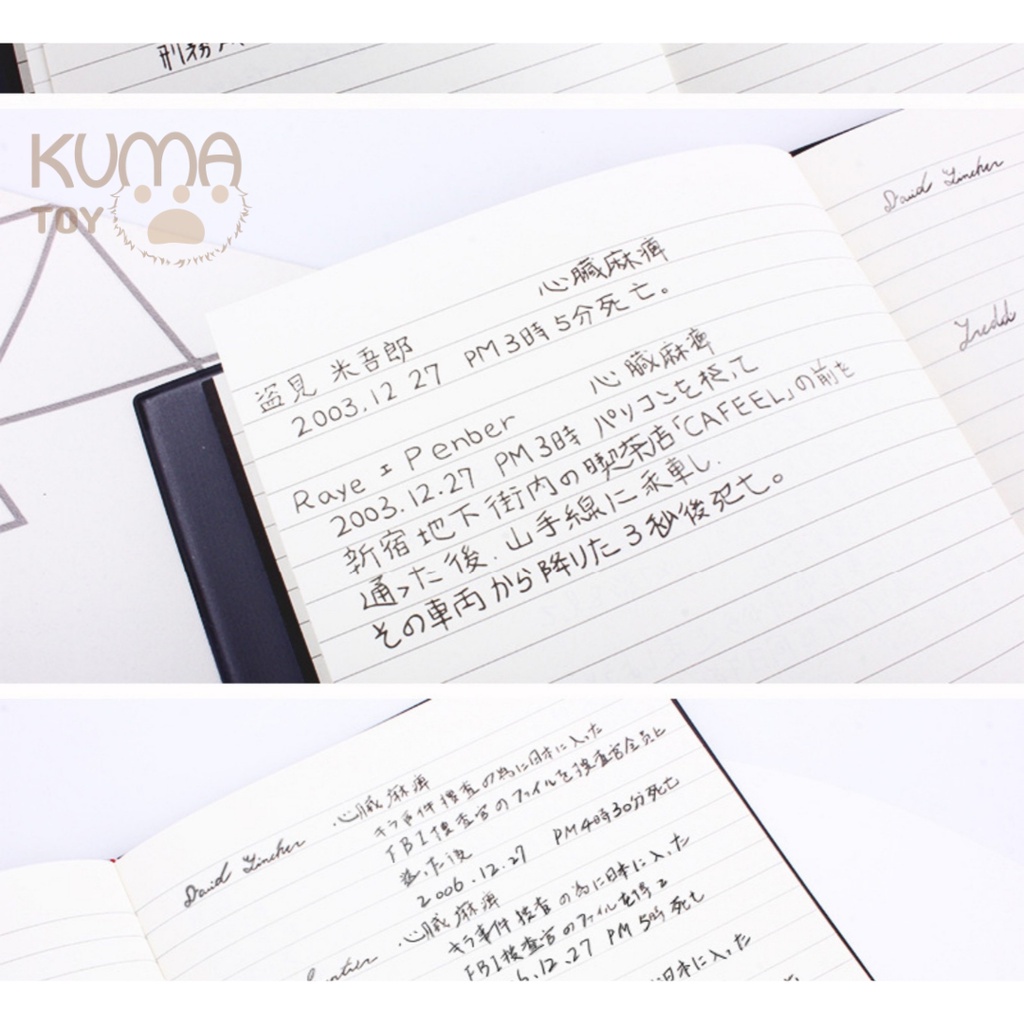 刑務
KUMA
TOY
心臓麻痺
盗見 米吾郎
2003.12 27 PM3時5分死亡。
心臓麻痺
Raye = Penber
2003.12.27 PM3時 パソコンを持って
新宿地下街内の喫茶店「CAFEEL」の前を
通った後、山手線に乗車し、
その車両から降りた3秒後死亡。
David
心臓麻痺
キラ事件捜査の為に日本に入った
FBI捜査官のファイルを捜査官全員に
送った後
2006.12.27 PM4時30分死亡
David
心臓麻痺
キラ事件捜査の為に日本に入った
FBI捜査官のファイルを得て
.12.27 PM5時死亡
日本に入った